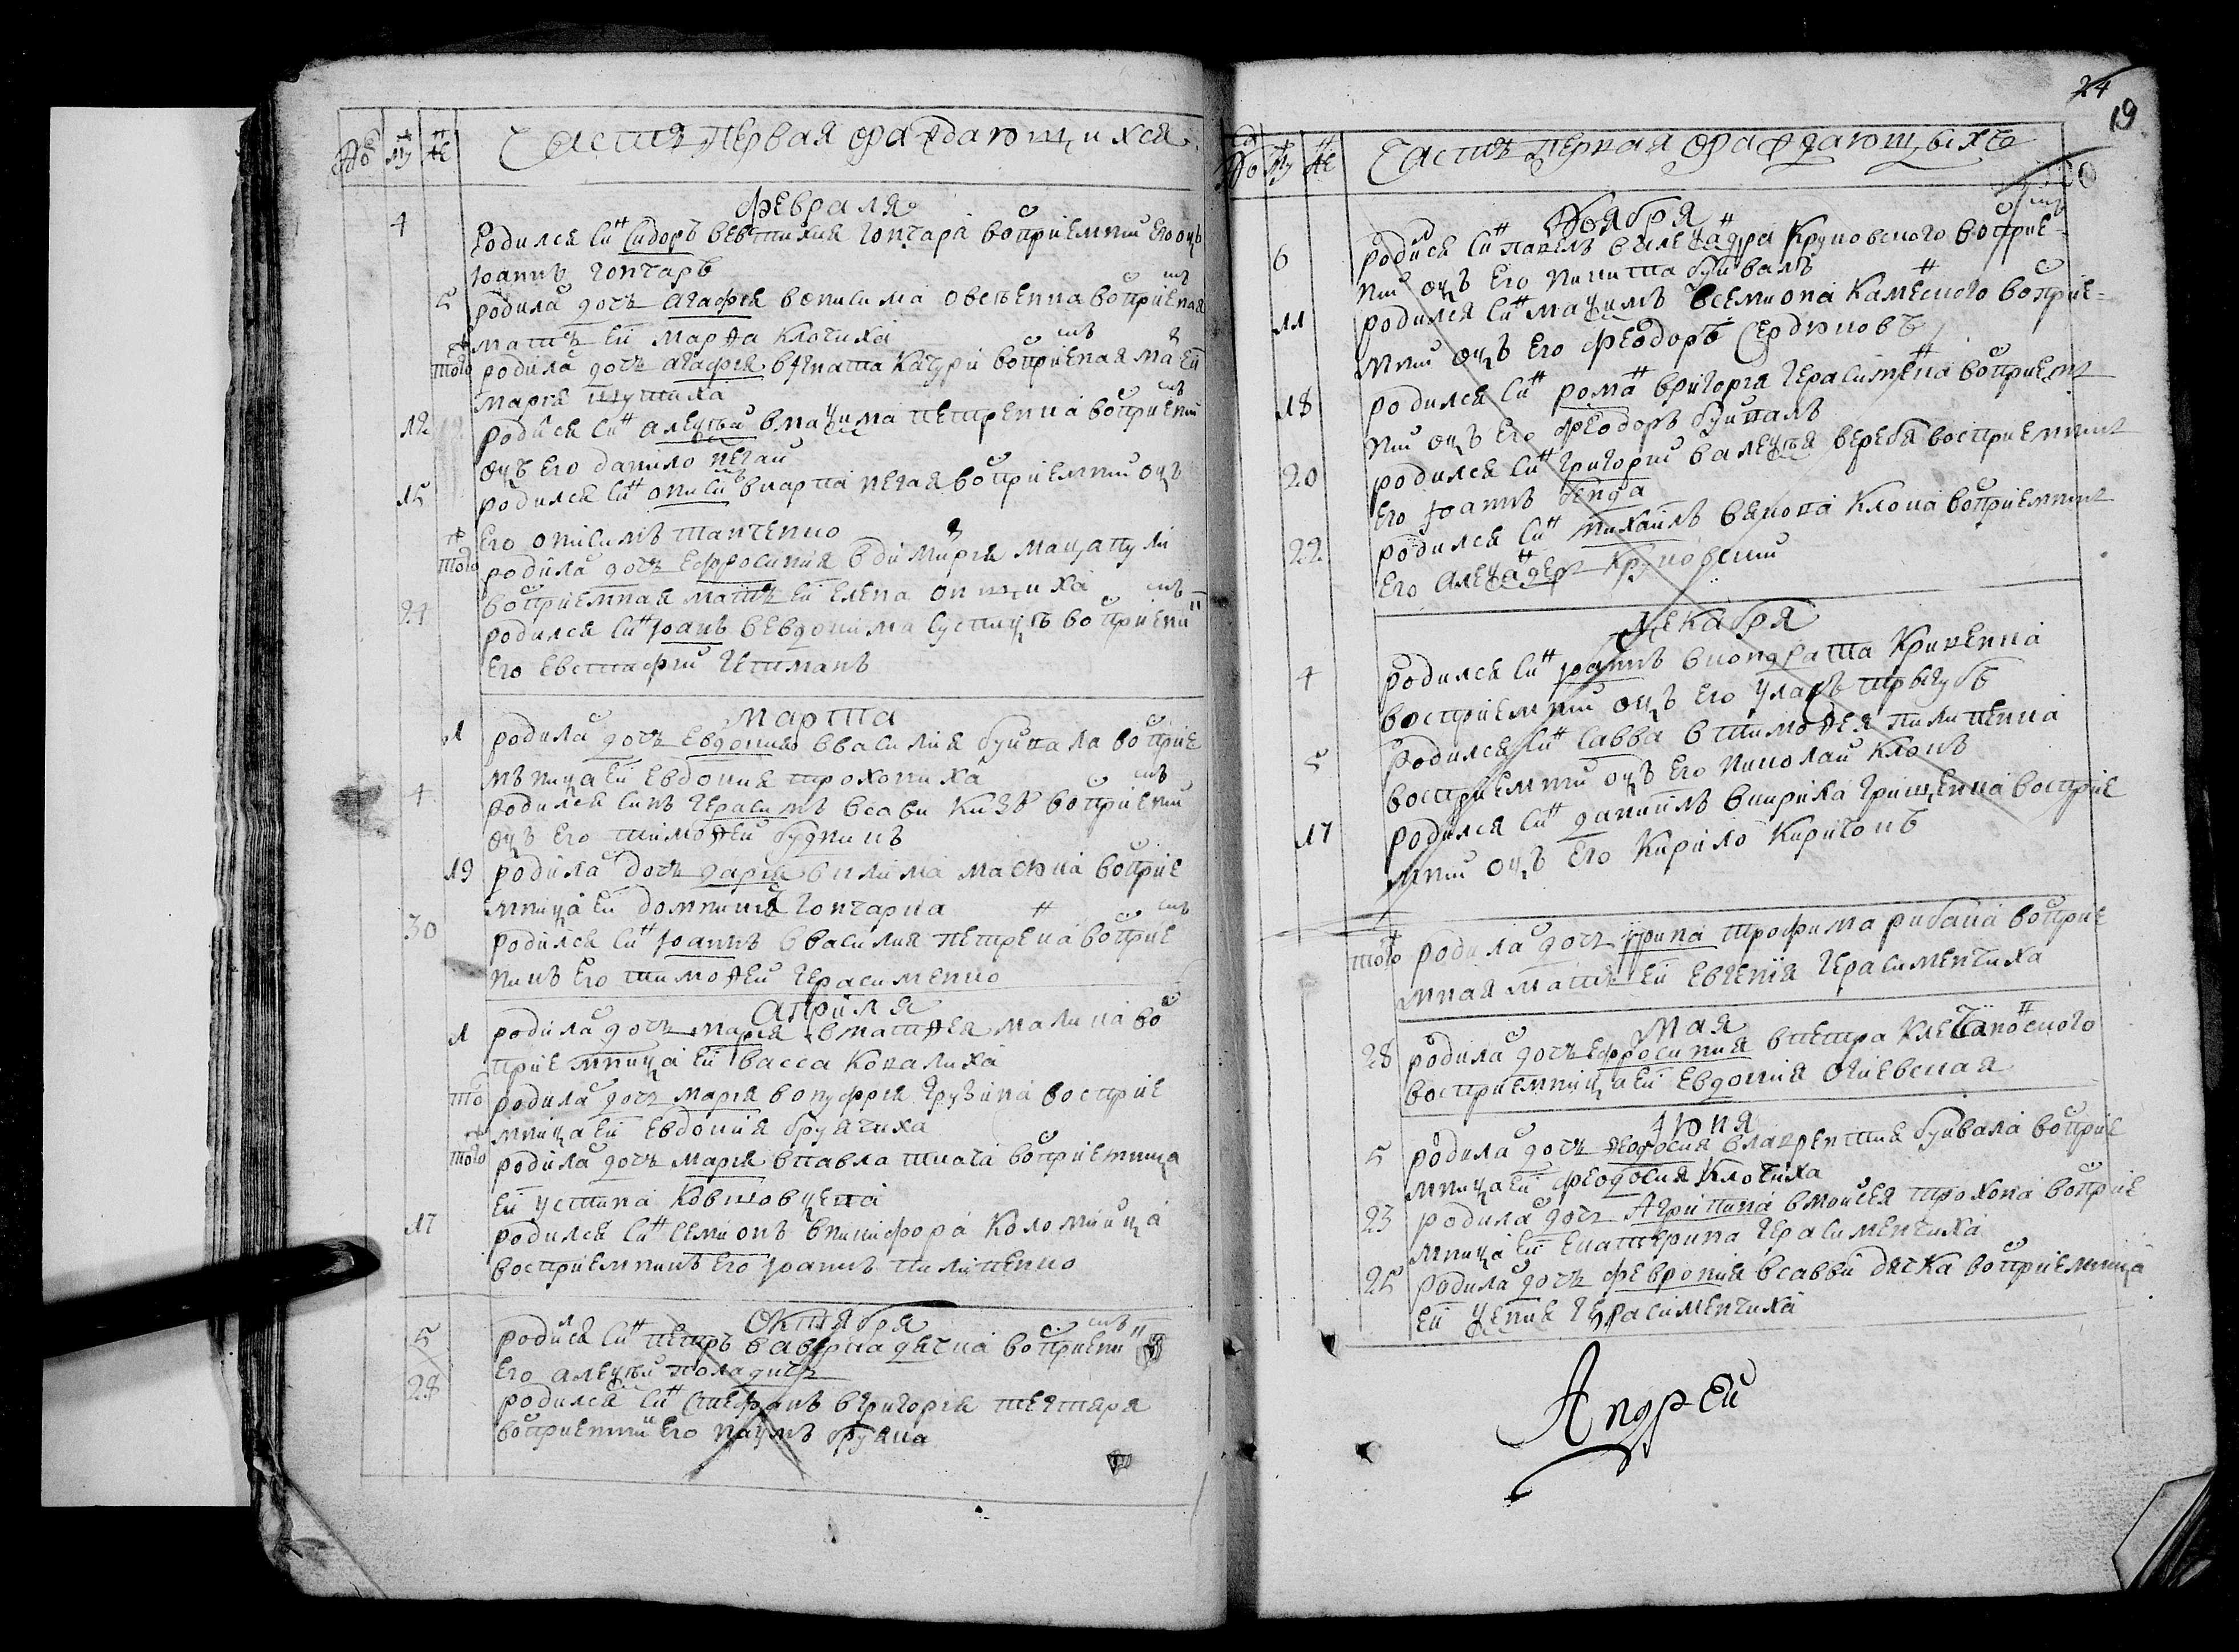 Часть первая ораждающихся
Февраля
4 Родился сн Сидоръ в Евтихия гончара воприемний его оцъ
Іоаннъ гончаръ
5 родила дочъ Агафия в онисима овсѣенка воприемная
матъ ей Марфа клочиха
того родила дочъ агафия в гната качури воприемная ма ей
мария шутиха
12 родися сн алеѯѣй в маѯима петренка воприемний
оцъ его данило пѣгай
15 родился сн описий в карпа пегая воприемний оцъ
его онисимъ танченко
того родила дочъ ефросиния в димитрия мацапули
воприемная матъ ей елена онищиха
24 родился сн іоанъ в евдокима воприемний
его евстафий гетманъ
Марта
1 родила дочъ евдокия в василия буйвала воприе
мѣница ей евдокия трохониха
4 родился синъ герасимъ в сави воприемний
оцъ его тимофей будникъ
19 родила дочъ дария в климa масюка воприе
мница ей домникия гончарка
30 родился сн іоаннъ в василия петренка воприе
никъ его тимофей герасименко
Априля
1 родила дочъ мария в матфея малика во
приемница ей васса ковалиха
то родила дочъ мария в онуфрия грузина восприе
мница ей евдокия бруячиха
того родила дочъ мария в павла ткача воприемница
ей устина ковшовцена
17 родился сн семионъ в никифора коломийца
восприемникъ его іоаннъ пилипенко
Октября
5 родися сн петръ в аверка дячка воприемний
его алеѯѣй поладичъ
28 родился сн стефанъ в григория тетяря
воприемний его наумъ бруяка
24
19
Часть первая ораждающыхся
Ноября
6 родися сн павелъ в алеѯандра круковского воприе-
ний оцъ его никита буйвалъ
11 родился сн маѯимъ в семиона каменского воприе-
мний оцъ его феодоръ сердюковъ
18 родился сн роман в григория герасименка воприем
ний оцъ его феодоръ буйвалъ
20 родился сн григорий в алеѯѣя веребя восприемник
его іоаннъ бенда
22 родился сн михаилъ в якова клока воприемник
его алеѯандеръ круковский
Декабря
4 родился сн іоаннъ в кондрата кривенка
восприемний оцъ его уласъ
5 родился сн савва в тимофея пилипенка
восприемний оцъ его николай клокъ
17 родился сн даниилъ в кирика грищенка восприе
мний оцъ его кирило киричокъ
того родила дочъ ірина трофима рибалка воприе
мная матъ ей евгения герасименчиха
Мая
28 родила дочъ ефросиния в петра клечановского
восприемница ей евдокия огиевская
Іюня
5 родила дочъ феодосия в лаврентия буйвала воприе
мница ей феодосия клочиха
23 родила дочъ агрипина в мойсея трохона воприе
мница ей екатерина герасименчиха
25 родила дочъ феврония в савви дячка воприемница
ей ѯения герасименчиха
Андрей